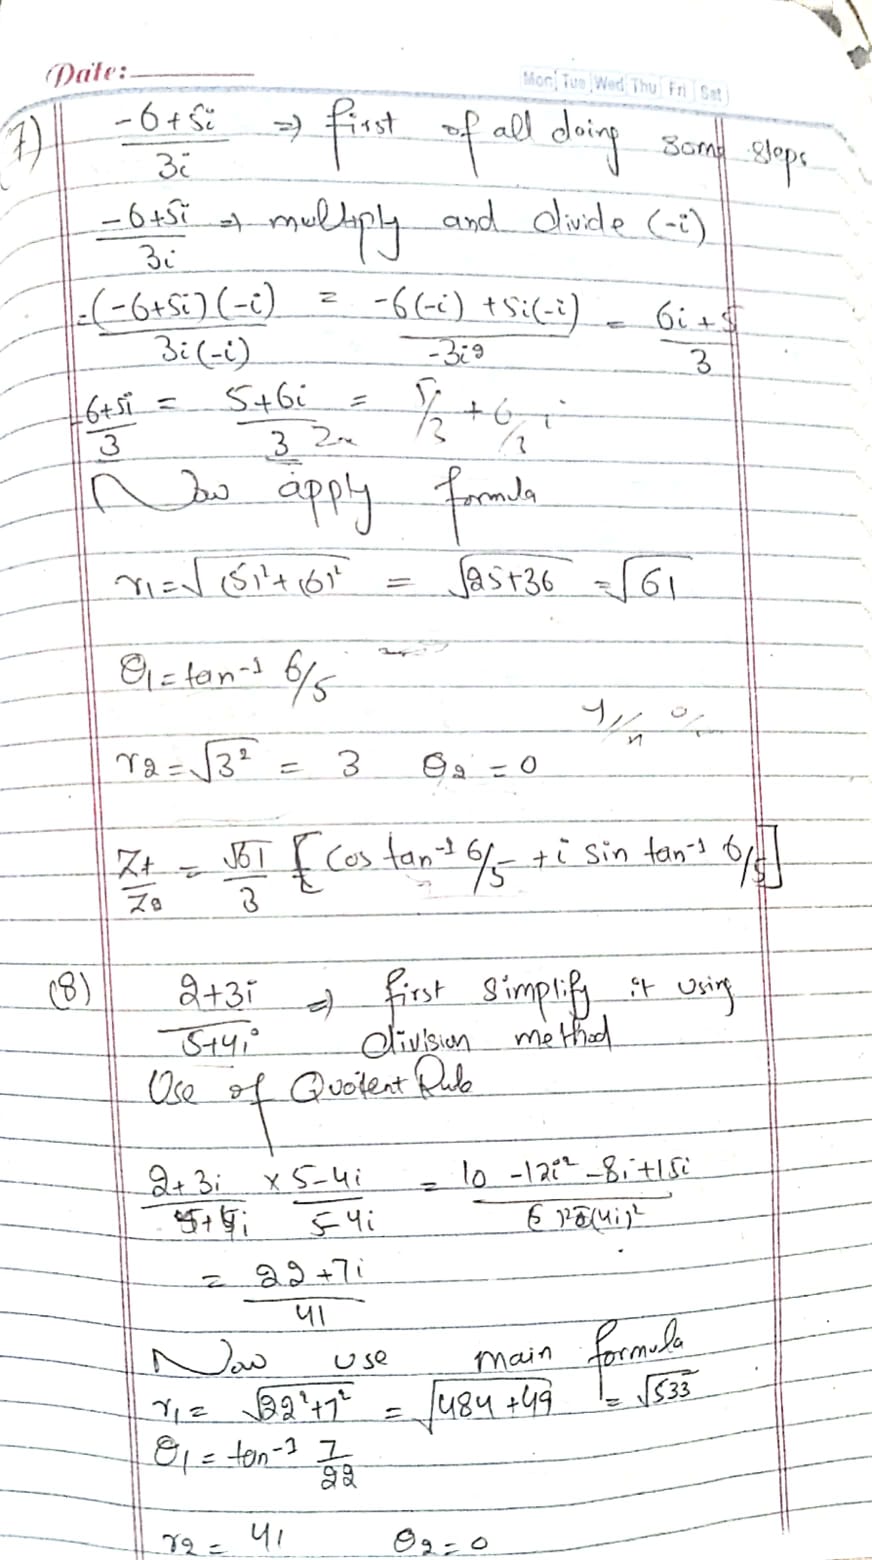 Date:
Mon Tue Wed Thu Fri Sat
7) -6+5i / 3i ⇒ first of all doing some steps
-6+5i / 3i ⇒ multiply and divide (-i)
= (-6+5i)(-i) / 3i(-i) = -6(-i) +5i(-i) / -3i² = 6i+5 / 3
-6+5i / 3 = 5+6i / 3 = 5/3 + 6/3 i
Now apply formula
r₁ = √(5)²+(6)² = √25+36 = √61
θ₁ = tan⁻¹ 6/5
r₂ = √3² = 3 θ₂ = 0
Z₁/Z₂ = √61/3 [Cos tan⁻¹ 6/5 + i sin tan⁻¹ 6/5]
(8) 2+3i / 5+4i ⇒ first simplify it using
division method
Use of Quotent Rule
2+3i / 5+4i × 5-4i / 5-4i = 10 -12i² -8i+15i
= 22+7i / 41
Now use main formula
r₁ = √22²+7² = √484+49 = √533
θ₁ = tan⁻¹ 7/22
r₂ = 41 θ₂ = 0